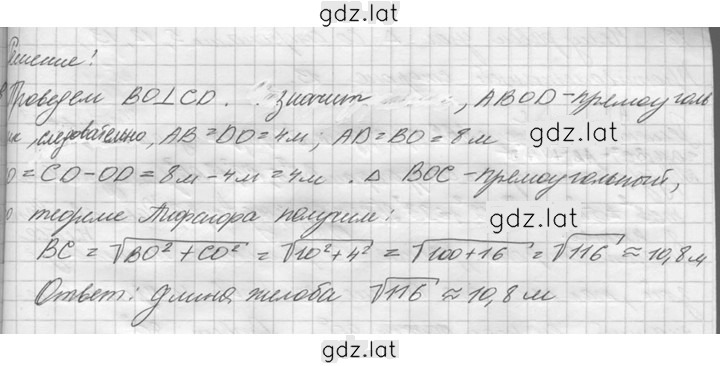 gdz.lat
Решение!
Проведем BO⊥CD. значит , ABOD-прямоуголь
следовательно, AB=DO=4м; AD=BO=8м
O=CD-OD=8м-4м=4м. △ BOC-прямоугольный,
gdz.lat
о теореме Пифагора получим:
BC = √BO²+CO² = √10²+4² = √100+16 = √116 ≈ 10,8м
Ответ: длина желоба √116 ≈ 10,8 м
gdz.lat